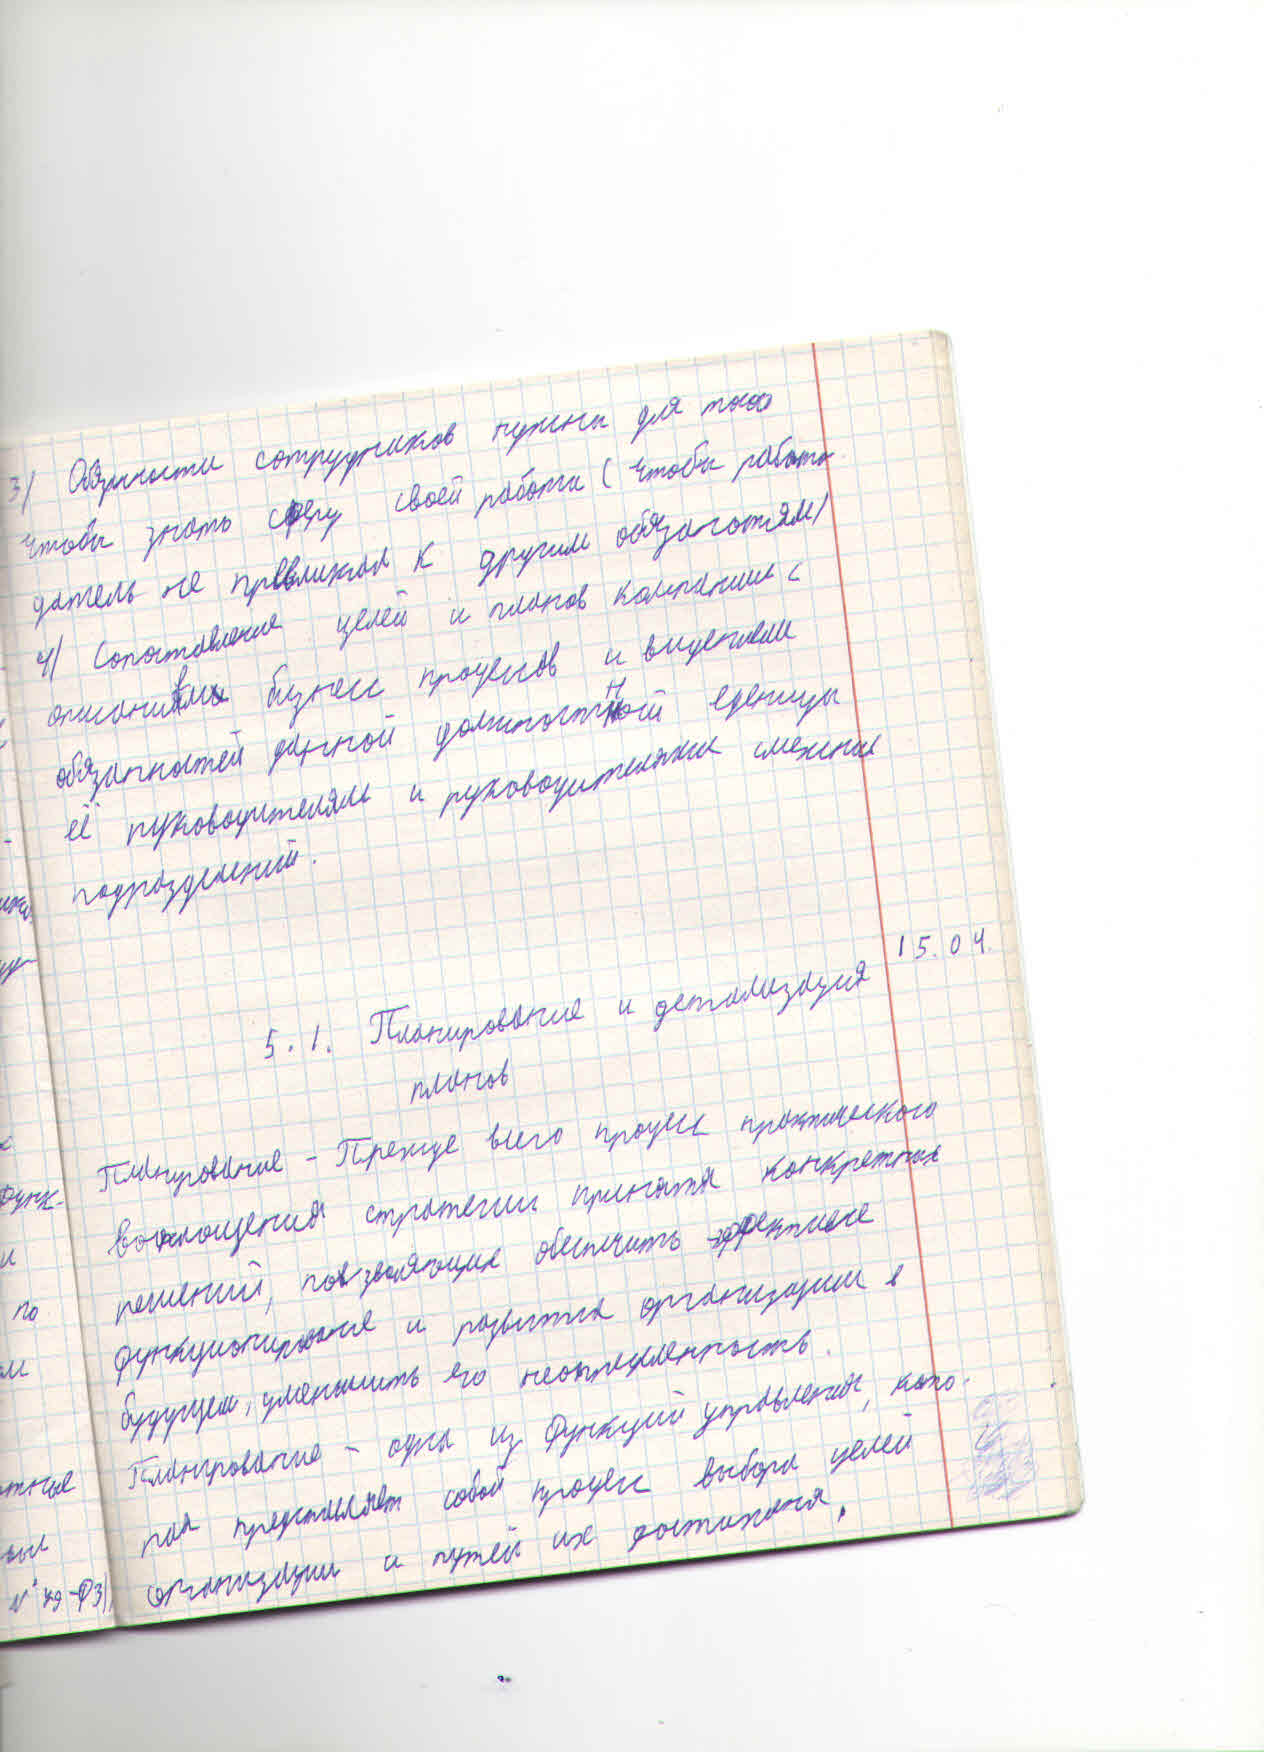 3) Обязнности сотрудников нужны для того
чтобы знать сферу своей работы ( чтобы работо-
датель не привликал к другим обязаностям)
4) Сопоставление целей и планов компании с
описанием бизнес процессов и видением
обязанностей данной должностной еденицы
её руководителям и руководителями смежных
подразделений.
15.04.
5.1. Планирование и детализация
планов
Планирование - Прежде всего процесс практического
воплощения стратегии принятя конкретных
решений, позволяющих обеспечить эффективное
функционирование и развития организации в
будущем, уменьшить его неопределенность.
Планирование - одна из функций управления, кото-
рая представляет собой процесс выбора целей
организации и путей их достиженя.
Функ-
и
по
ии
N° 79-ФЗ),